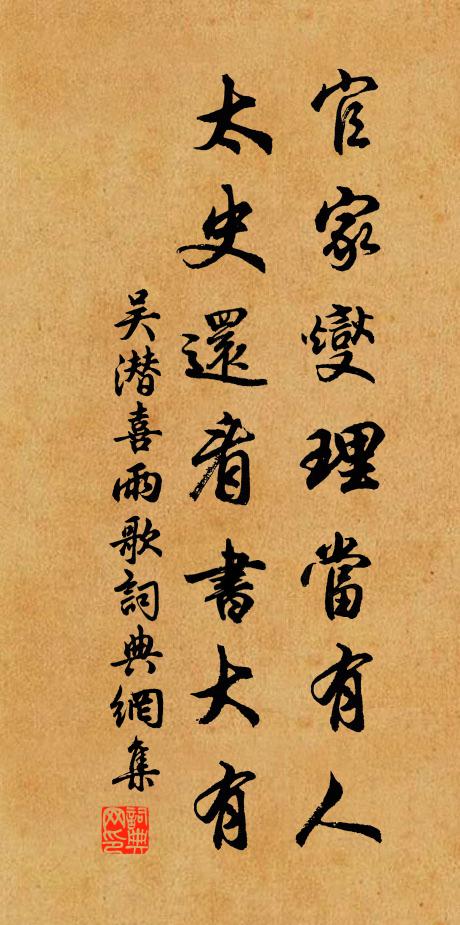 官家燮理當有人
太史還看書大有
吴潜喜雨歌詞典網集
詞典网印